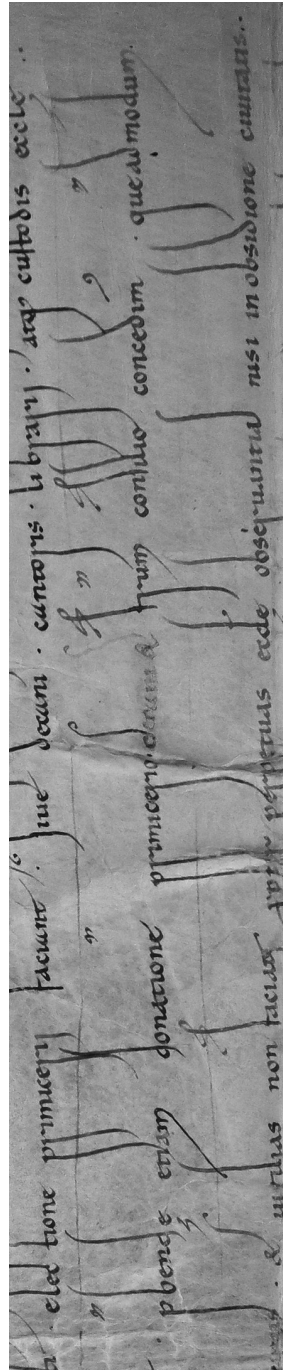 electione primicerii faciant . siue decani . cantoris . librarii . atq custodis eccle ..
. pbende etiam donatione primicerio . decanum & trum consilio concedim . quēadmodum .
& uigilias non faciat perpetuis eccle obseruantia nisi in obsidione ciuitatis ..